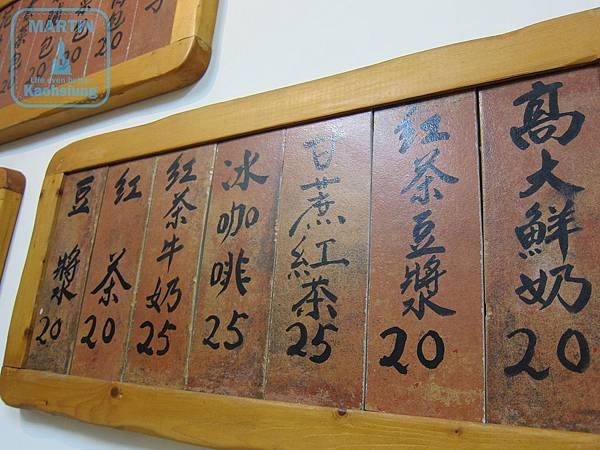 MARTIN
Life even better
Kaohsiung
20
20
20
高大鮮奶20
紅茶豆漿20
甘蔗紅茶25
冰咖啡25
紅茶牛奶25
紅茶20
豆漿20